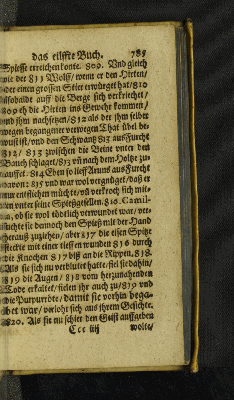 das eilffte Buch. 785
Spiesse erreichen konte. 809. Und gleich
wie der 811 Wolff/ wenn er den Hirten/
oder einen grossen Stier erwürget hat/ 810
alsobalde auff die Berge sich verkriechet/
809 eh die Hirten ins Gewehr kommen/
und ihm nachsetzen/ 812 als der ihm selber
wegen begangener verwegen That übel be-
wust ist/ und den Schwantz 813 aus Furcht
812/ 813 zwischen die Beine unter den
Bauch schlaget/ 813 uñ nach dem Holtze zu-
lauffet. 814 Eben so lieff Aruns aus Furcht
davon: 815 und war wol vergnüget/ daß er
nur entfliehen möchte/ uñ verkroch sich mit-
ten unter seine Spießgesellen. 816. Camil-
la, ob sie wol tödtlich verwundet war/ ver-
suchte sie dennoch den Spieß mit der Hand
heraus zuziehen/ aber 817 die eisen Spitze
steckte mit einer tieffen wunden 816 durch
die Knochen 817 biß an die Rippen. 818.
Als sie sich nu verblutet hatte/ fiel sie dahin/
819 die Augen/ 818 vom herzunahenden
Tode erkältet/ fielen ihr auch zu/ 819 und
die Purpurröte/ damit sie vorhin bega-
bet war/ verlohr sich aus ihrem Gesichte.
820. Als sie nu schier den Geist auffgeben
Ccc iiij wolte/